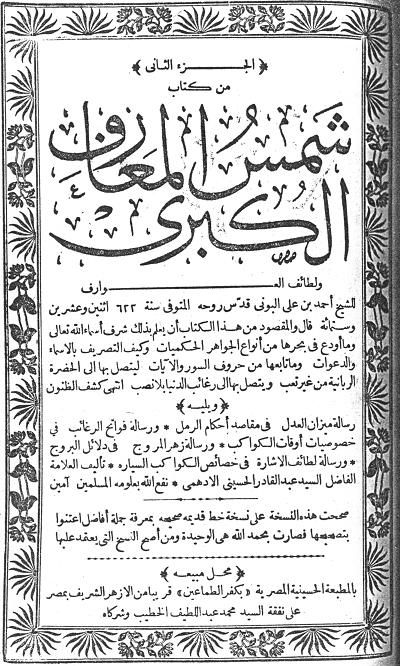 ﴿ الجزء الثانى ﴾
من كتاب
شمس المعارف
الكبرى
ولطائف العـــــــوارف
للشيخ أحمد بن على البونى قدّس روحه المتوفى سنة ٦٢٢ اثنين وعشر بن
وستمائة قال والمقصود من هذا الكتاب أن يعلم بذلك شرف أسماء الله تعالى
وما أودع فى بحرها من أنواع الجواهر الحكميات وكيف التصريف بالاسماء
والدعوات وما تابعها من حروف السور والآيات ليتصل بها الى الحضرة
الربانية من غير تعب ويتصل بها الى رغائب الدنيا بلا نصب انتهى كشف الظنون
﴿ ويليه ﴾
رسالة ميزان العدل فى مقاصد أحكام الرمل * ورسالة فواتح الرغائب فى
خصوصيات أوقات الكواكب * ورسالة زهر المروج فى دلائل البروج
* ورسالة لطائف الاشارة فى خصائص الكواكب السياره * تأليف العلامة
الفاضل السيد عبد القادر الحسينى الادهمى * نفع الله بعلومه المسلمين آمين
صححت هذه النسخة على نسخة خط قديمه صحيحه بمعرفة جملة أفاضل اعتنوا
بتصحيحها فصارت بحمد الله هى الوحيدة ومن أصح النسخ التى يعتمد عليها
﴿ محل مبيعه ﴾
بالمطبعة الحسينية المصرية * بكفر الطماعين * قريبا من الازهر الشريف بمصر
على نفقة السيد محمد عبد اللطيف الخطيب وشركاه